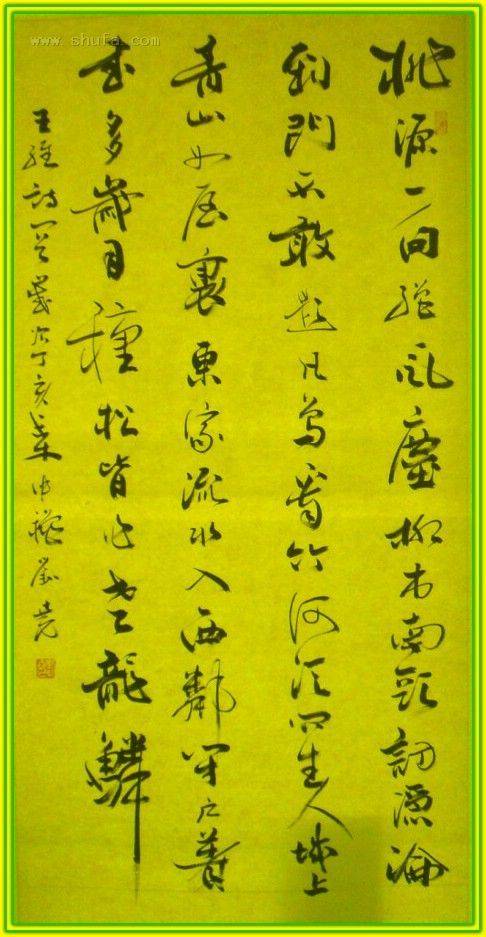 www.shufa.com
桃源一向絕風塵柳市南頭訪隱淪
到門不敢題凡鳥看竹何須問主人城上
青山如屋裏東家流水入西鄰閉戶著
書多歲月種松皆作老龍鱗
王維詩一首歲次丁亥